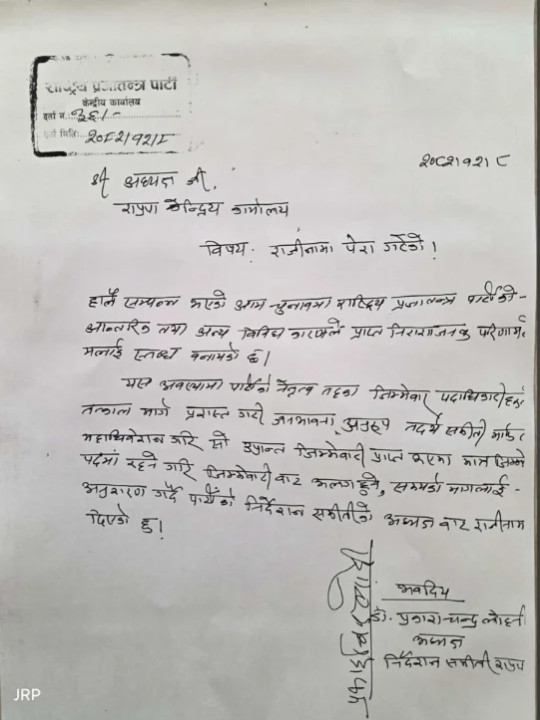 राष्ट्रिय प्रजातन्त्र पार्टी
केन्द्रीय कार्यालय
दर्ता नं. ३६/-
दर्ता मितिः २०८२/१२/८
२०८२/१२/८
श्री अध्यक्ष जी,
राप्रपा केन्द्रिय कार्यालय
विषय: राजीनामा पेश गरेको।
हालै सम्पन्न भएको आम चुनावमा राष्ट्रिय प्रजातन्त्र पार्टीको
आन्तरिक तथा अन्य विविध कारणले प्राप्त निराशाजनक परिणामले
मलाई स्तब्ध बनाएको छ।
यस अवस्थामा पार्टीको नेतृत्व तहका जिम्मेवार पदाधिकारीहरु
तत्काल मार्ग प्रशस्त गरी जनभावना अनुरूप तदर्थ समिती मार्फत
महाधिवेशन गरि सो उप्रान्त जिम्मेवारी प्राप्त भएमा मात्र जिम्मे
पदमा रहने गरि जिम्मेवारी बाट अलग हुने, समयको मागलाई -
अनुशरण गर्दै पार्टीको निर्देशन समितीको अध्यक्ष बाट राजीनामा
दिएको छु।
भवदिय
डा. प्रकाश चन्द्र लोहनी
अध्यक्ष
निर्देशन समिती राप्रपा
JRP